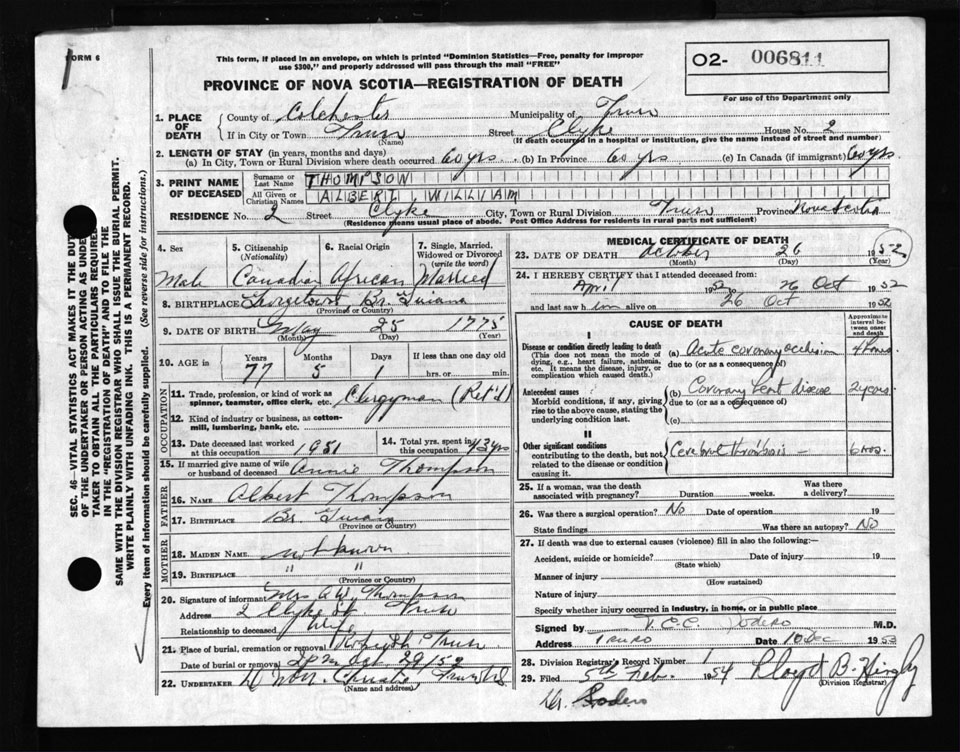 FORM 6
This form, if placed in an envelope, on which is printed "Dominion Statistics—Free, penalty for improper
use $300," and properly addressed will pass through the mail "FREE"
O2- 006811
For use of the Department only
PROVINCE OF NOVA SCOTIA—REGISTRATION OF DEATH
1. PLACE OF DEATH
County of Colchester Municipality of Truro
If in City or Town Truro Street Clyke House No. 2
(Name) (If death occurred in a hospital or institution, give the name instead of street and number)
2. LENGTH OF STAY (in years, months and days)
(a) In City, Town or Rural Division where death occurred 60 yrs. (b) In Province 60 yrs (c) In Canada (if immigrant) 60 yrs.
3. PRINT NAME OF DECEASED
Surname or Last Name THOMPSON
All Given or Christian Names ALBERT WILLIAM
RESIDENCE No. 2 Street Clyke City, Town or Rural Division Truro Province Nova Scotia
(Residence means usual place of abode. Post Office Address for residents in rural parts not sufficient)
4. Sex
5. Citizenship (Nationality)
6. Racial Origin
7. Single, Married, Widowed or Divorced (write the word)
Male Canadian African Married
8. BIRTHPLACE Georgetown Br. Guiana
(Province or Country)
9. DATE OF BIRTH May 25 1775
(Month) (Day) (Year)
10. AGE in Years Months Days If less than one day old
77 5 1 hrs. or min.
OCCUPATION
11. Trade, profession, or kind of work as spinner, teamster, office clerk, etc. Clergyman (Ret'd)
12. Kind of industry or business, as cotton-mill, lumbering, bank, etc.
13. Date deceased last worked at this occupation 1951
14. Total yrs. spent in this occupation 43 yrs
15. If married give name of wife or husband of deceased Annie Thompson
FATHER
16. NAME Albert Thompson
17. BIRTHPLACE Br. Guiana
(Province or Country)
MOTHER
18. MAIDEN NAME not known
19. BIRTHPLACE " "
(Province or Country)
20. Signature of informant Mrs A. W. Thompson
Address 2 Clyke St. Truro
Relationship to deceased Wife
21. Place of burial, cremation or removal Truro
Date of burial or removal 2 p m Oct 29/52
22. UNDERTAKER Christie Truro N.S.
(Name and address)
MEDICAL CERTIFICATE OF DEATH
23. DATE OF DEATH October 26 1952
(Month) (Day)
24. I HEREBY CERTIFY that I attended deceased from:
April 1952 to 26 Oct 1952
and last saw him alive on 26 Oct 1952
CAUSE OF DEATH
Approximate interval between onset and death
I
Disease or condition directly leading to death
(This does not mean the mode of dying, e.g., heart failure, asthenia, etc. It means the disease, injury, or complication which caused death.)
(a) Acute coronary occlusion 4 hours
due to (or as a consequence of)
Antecedent causes
Morbid conditions, if any, giving rise to the above cause, stating the underlying condition last.
(b) Coronary heart disease 2 years
due to (or as a consequence of)
(c)
II
Other significant conditions
contributing to the death, but not related to the disease or condition causing it.
Cerebral thrombosis — 6 mos.
25. If a woman, was the death associated with pregnancy? Duration weeks. Was there a delivery?
26. Was there a surgical operation? No Date of operation 19
State findings Was there an autopsy? No
27. If death was due to external causes (violence) fill in also the following:
Accident, suicide or homicide? Date of injury 19
(State which)
Manner of injury
(How sustained)
Nature of injury
Specify whether injury occurred in industry, in home, or in public place
Signed by M.D.
Address Truro Date 10 Dec 1953
28. Division Registrar's Record Number 1
29. Filed 5th Feb. 1954 Lloyd B.
(Division Registrar)
SEC. 46—VITAL STATISTICS ACT MAKES IT THE DUTY
OF THE UNDERTAKER OR PERSON ACTING AS UNDER-
TAKER TO OBTAIN ALL THE PARTICULARS REQUIRED
IN THE "REGISTRATION OF DEATH" AND TO FILE THE
SAME WITH THE DIVISION REGISTRAR WHO SHALL ISSUE THE BURIAL PERMIT.
WRITE PLAINLY WITH UNFADING INK. THIS IS A PERMANENT RECORD.
Every item of information should be carefully supplied. (See reverse side for instructions.)